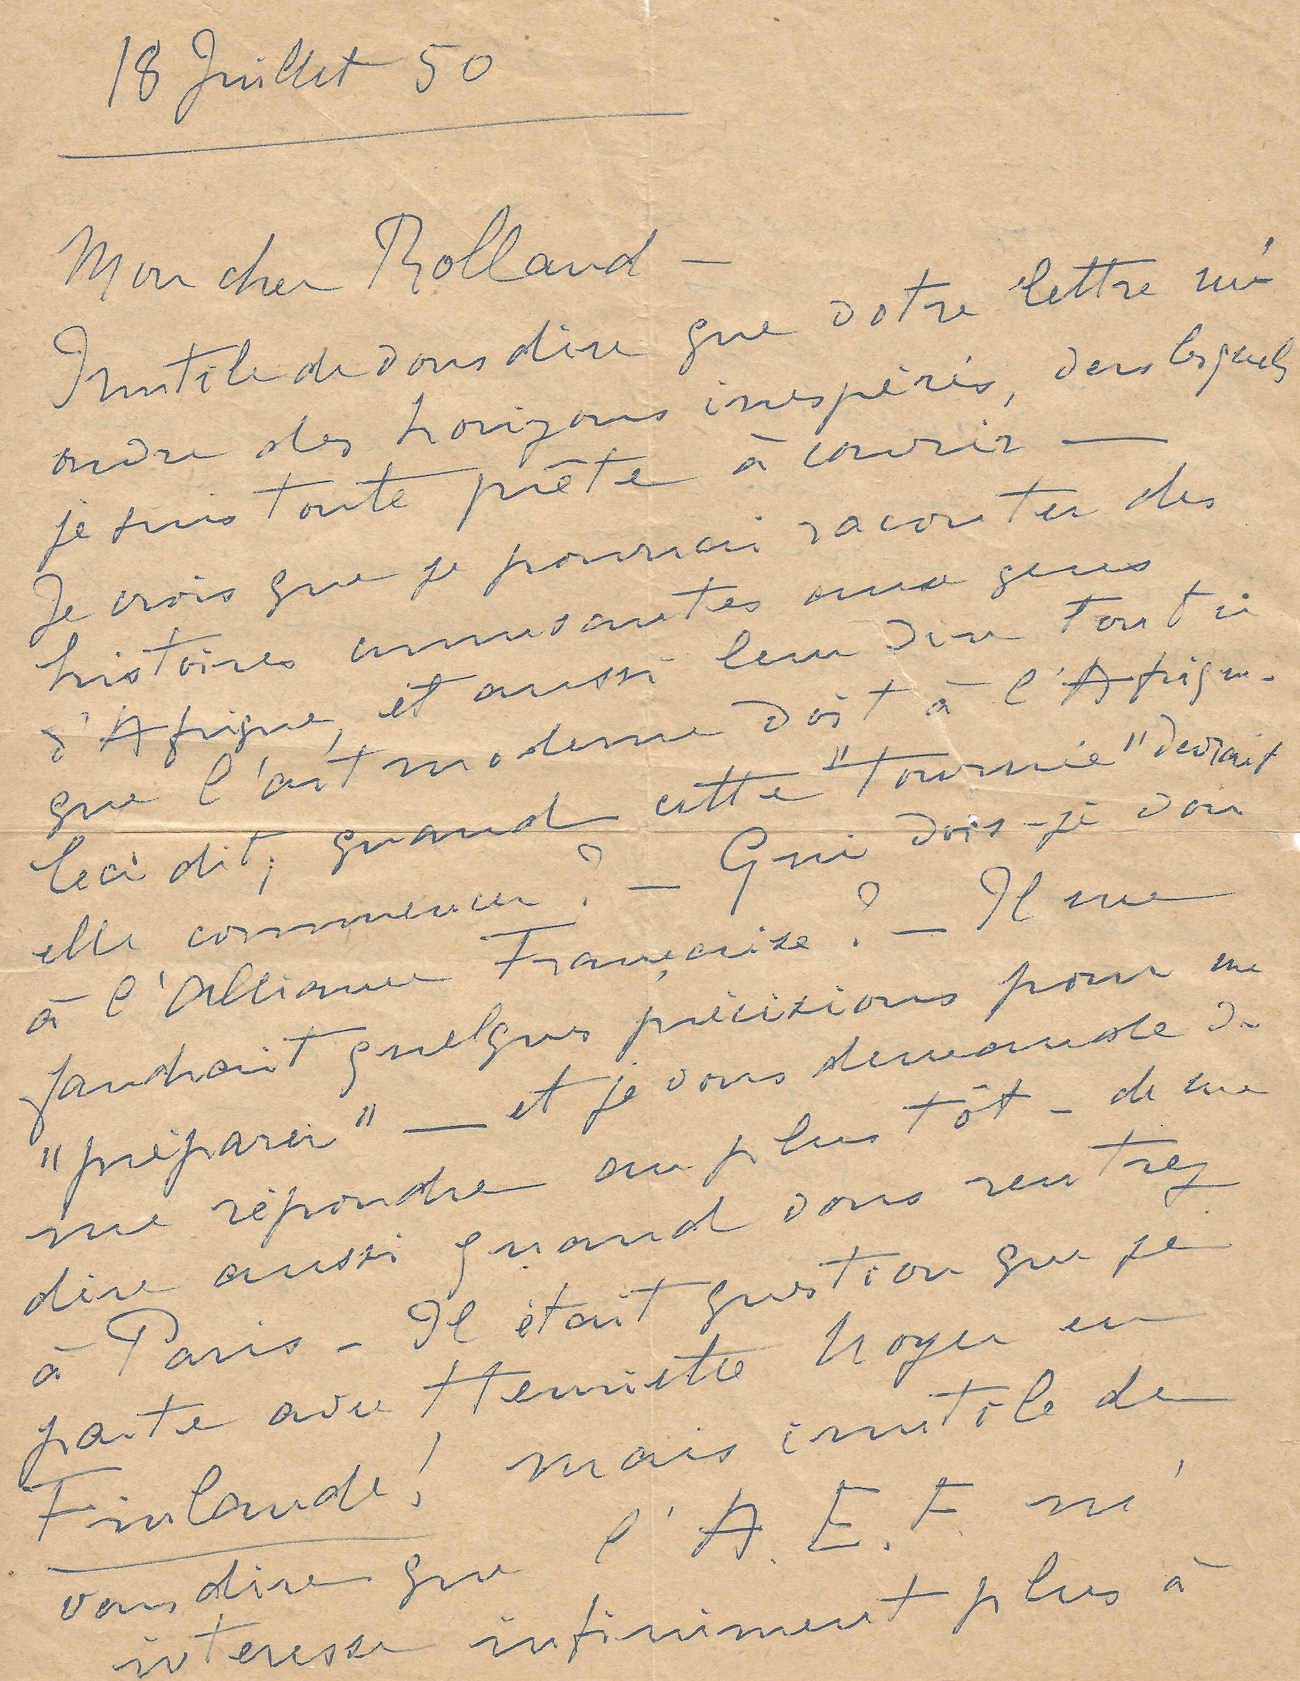 18 Juillet 50
Mon cher Rolland –
Inutile de vous dire que votre lettre m'
ouvre des horizons inespérés, vers lesquels
je suis toute prête à courir —
Je crois que je pourrai raconter des
histoires amusantes aux gens
d'Afrique, et aussi leur dire tout ce
que l'art moderne doit à l'Afrique.
Ceci dit, quand cette "tournée" devrait
elle commencer ? – Qui dois-je voir
à l'Alliance Française ? – Il me
faudrait quelques précisions pour me
"préparer" — et je vous demande de
me répondre au plus tôt – de me
dire aussi quand vous rentrez
à Paris – Il était question que je
parte avec Henriette Noyer en
Finlande ! mais inutile de
vous dire que l'A.E.F. m'
interesse infiniment plus à